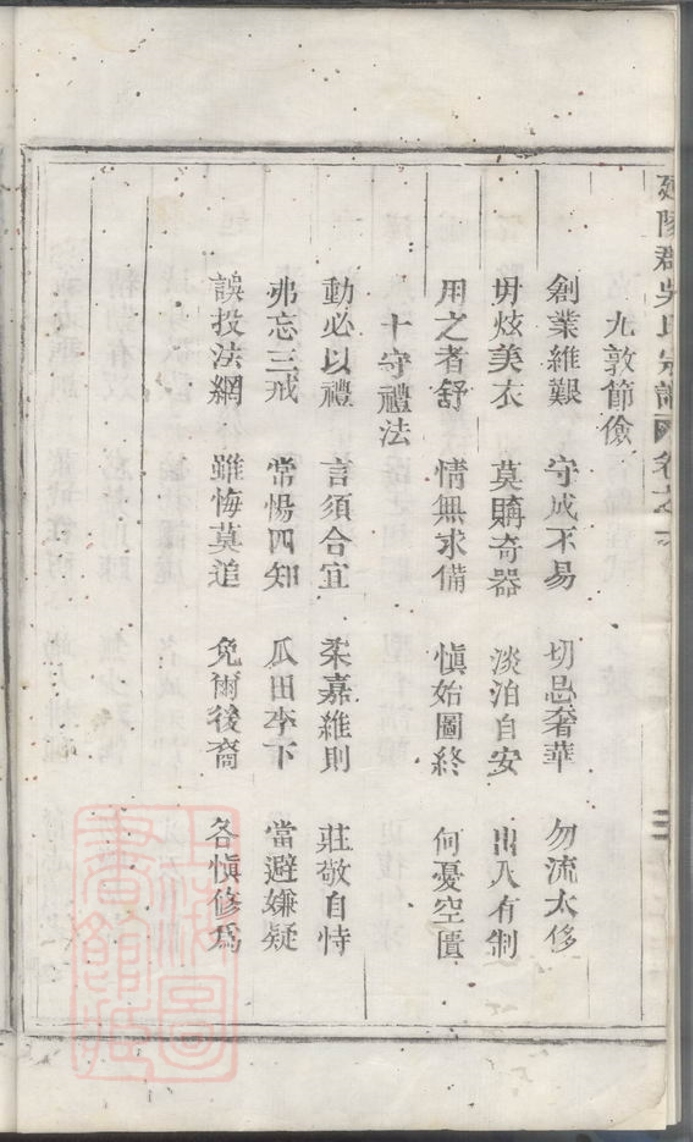 延陵郡吳氏宗譜 卷之
九敦節儉
創業維艱 守成不易 切忌奢華 勿流太侈
毋炫美衣 莫購奇器 淡泊自安 出入有制
用之者舒 情無求備 愼始圖終 何憂空匱
十守禮法
動必以禮 言須合宜 柔嘉維則 莊敬自恃
弗忘三戒 常惕四知 瓜田李下 當避嫌疑
誤投法網 雖悔莫追 免爾後裔 各愼修爲
上海圖
書館藏